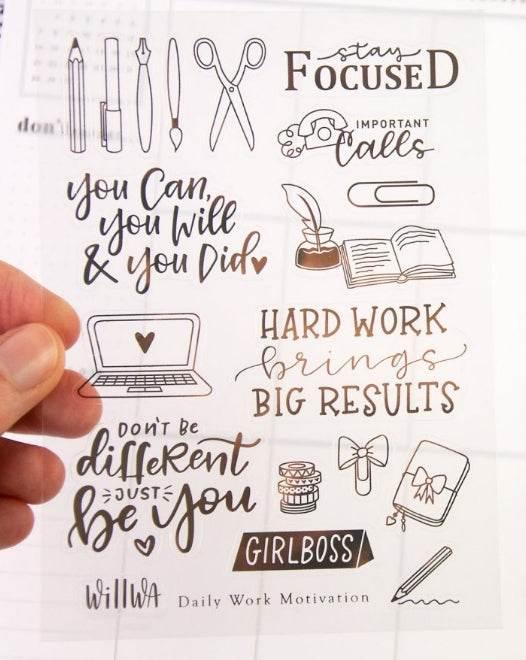 stay
FOCUSED
IMPORTANT
Calls
don't
You Can,
you Will
& you Did
HARD WORK
brings
BIG RESULTS
DON'T BE
different
JUST
be you
GIRLBOSS
WillWA
Daily Work Motivation